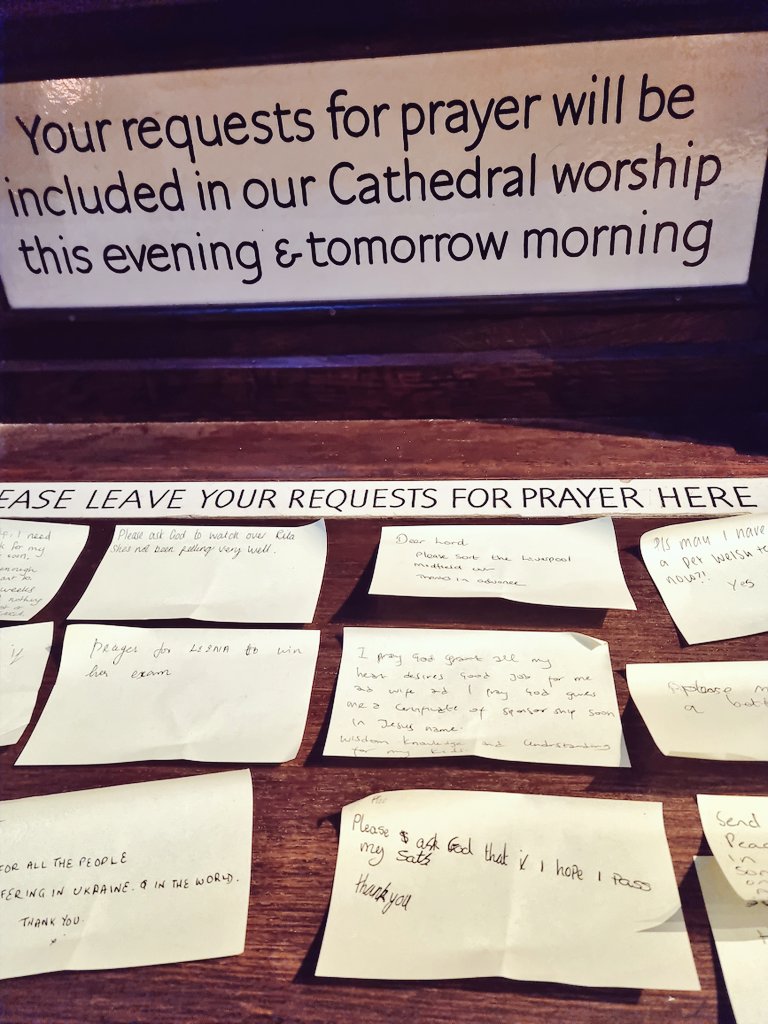 Your requests for prayer will be
included in our Cathedral worship
this evening & tomorrow morning
EASE LEAVE YOUR REQUESTS FOR PRAYER HERE
I need
for my
soon.
enough
weeks
nothing
Please ask God to watch over Rita
Shes not been feeling very well.
Dear Lord
Please sort the Liverpool
midfield out
Thanks in advance
Pls may I have
a pet Welsh
now?!
Yes
Prayer for LEENA to win
her exam
I pray God grant all my
heart desires Good Job for me
ad wife ad I pray God gives
me a Certificate of Sponsorship soon
in Jesus name.
Wisdom knowledge and understanding
for my kids.
a
FOR ALL THE PEOPLE
FERING IN UKRAINE. & IN THE WORLD.
THANK YOU.
x
Please ask God that I hope I Pass
my Sats
thank you
Send
Peac
in